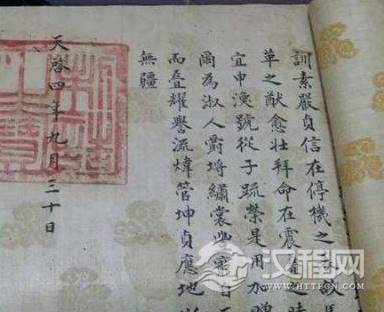 訓素嚴貞信在停機之
草之猷愈壯拜命在震
宜申渙號從子疏榮是用加贈
爾為淑人爵埒繡裳
而叠耀譽流煒管坤貞應地
無疆
天啓四年九月三十日
汉程网
WWW.HTTPCN.COM